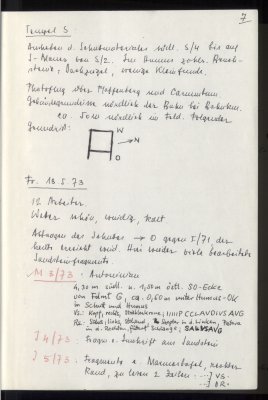 7
Tempel S:
S/4 bis auf
S-Mauer von S/2. Im Humus zahlr. Bruch-
steine, Dachziegel, wenige Kleinfunde.
Photoflug über Pfaffenberg und Carnuntum.
nördlich der Bahn bei
ca 50 m nördlich im Feld. Folgender
Grundriß:
W
N
O
Fr. 18.5.73
12 Arbeiter
Wetter schön, windig, kalt
Abtragen des → O gegen I/71, der
heute erreicht wird. Hier wieder viele bearbeitete
Sandsteinfragmente.
M 3/73: Antoninian
4,30 m südl. u. 1,50 m östl. SO-Ecke
von Fdmt G, ca. 0,60 m unter Humus-OK
in Schutt und Humus
Vs: Kopf, rechts, Strahlenkrone; CLAVDIVS AVG
Rs: Salus, links, stehend, Patera
in d. Rechten, füttert Schlange; SALVS AVG
J 4/73: Fragm. e. Inschrift aus Sandstein
J 5/73: Fragmente e. Marmortafel, rechter
Rand, zu lesen 2 Zeilen ...] VS.
...] BR.